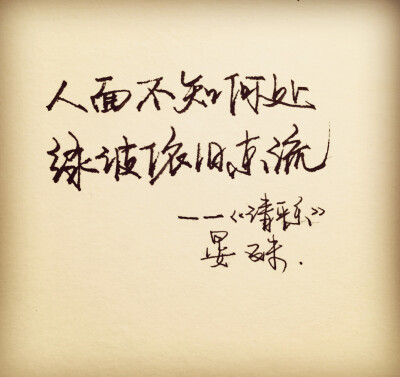 人面不知何处
绿波依旧东流
——《清平乐》
晏殊.